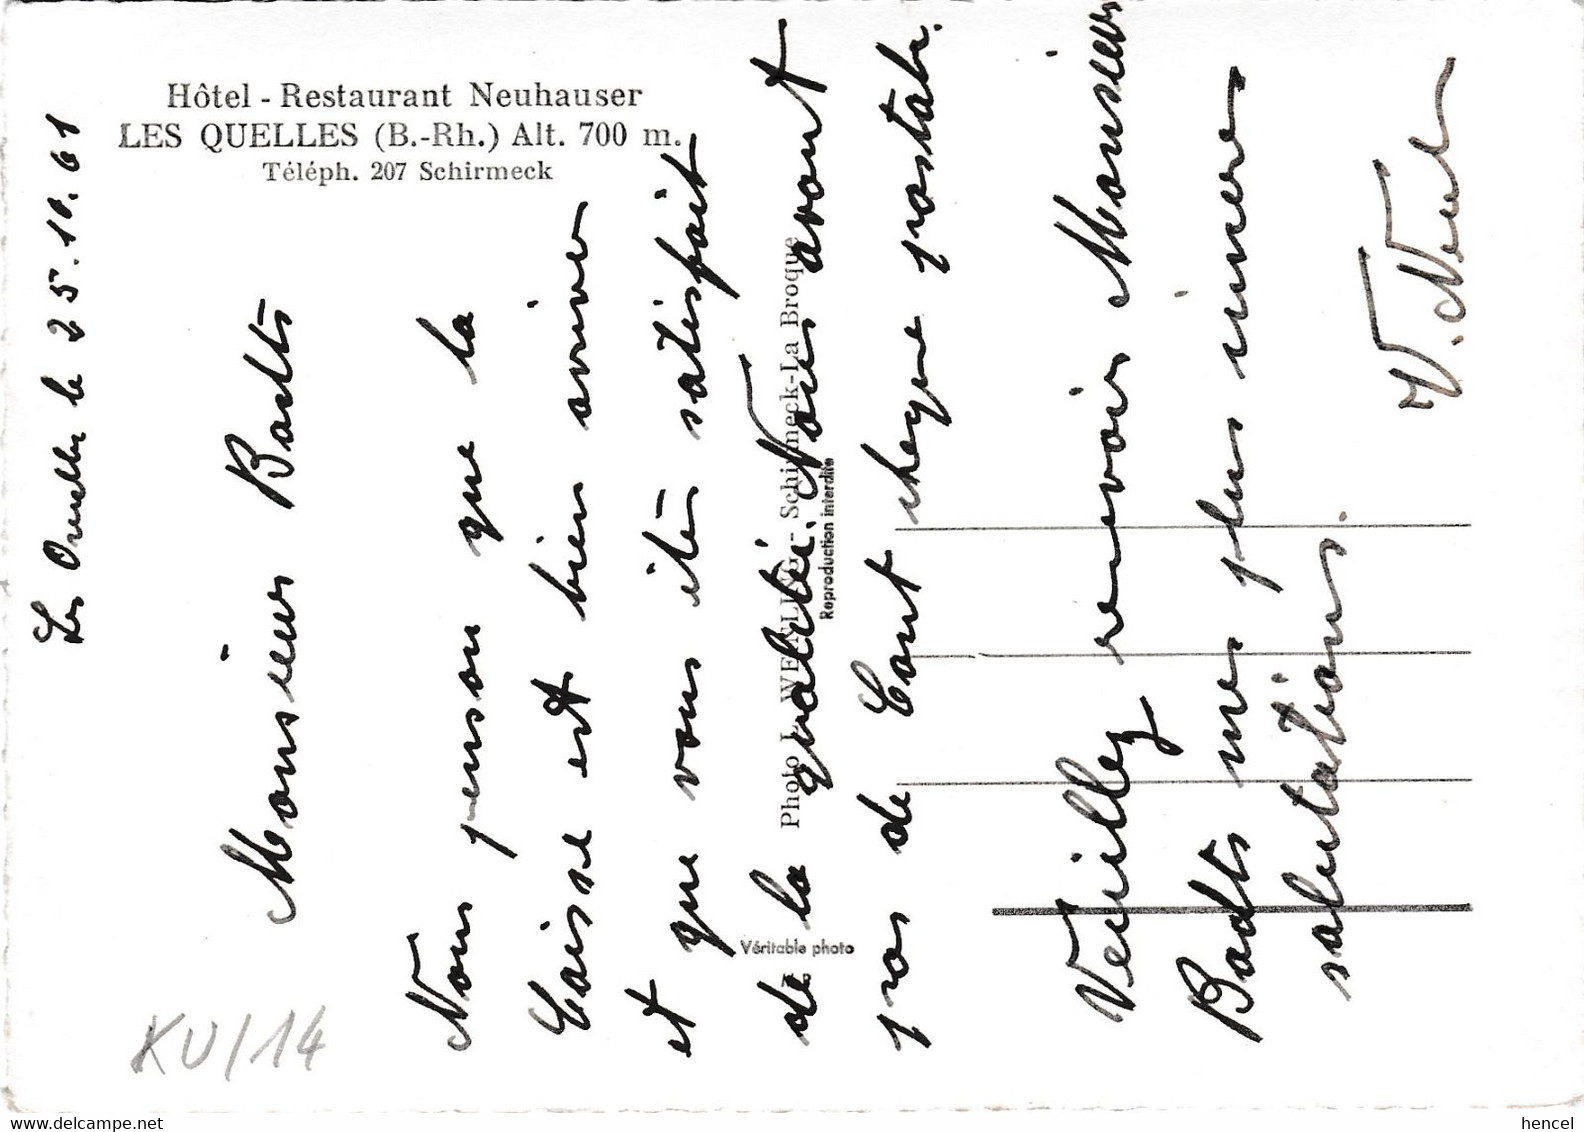 Hôtel - Restaurant Neuhauser
LES QUELLES (B.-Rh.) Alt. 700 m.
Téléph. 207 Schirmeck
Les Quelles le 25.10.61
Monsieur Badts
Nous penson que la
Caisse est bien arrivée
et que vous êtes satisfait
de la qualité. Nous avont
pas de Cont cheque postale.
Veuillez revoir Monsieur
Badts mes plus sinceres
salutations.
Photo L. WENLING - Schirmeck-La Broque
Reproduction interdite
Véritable photo
KU/14
delcampe.net
hencel